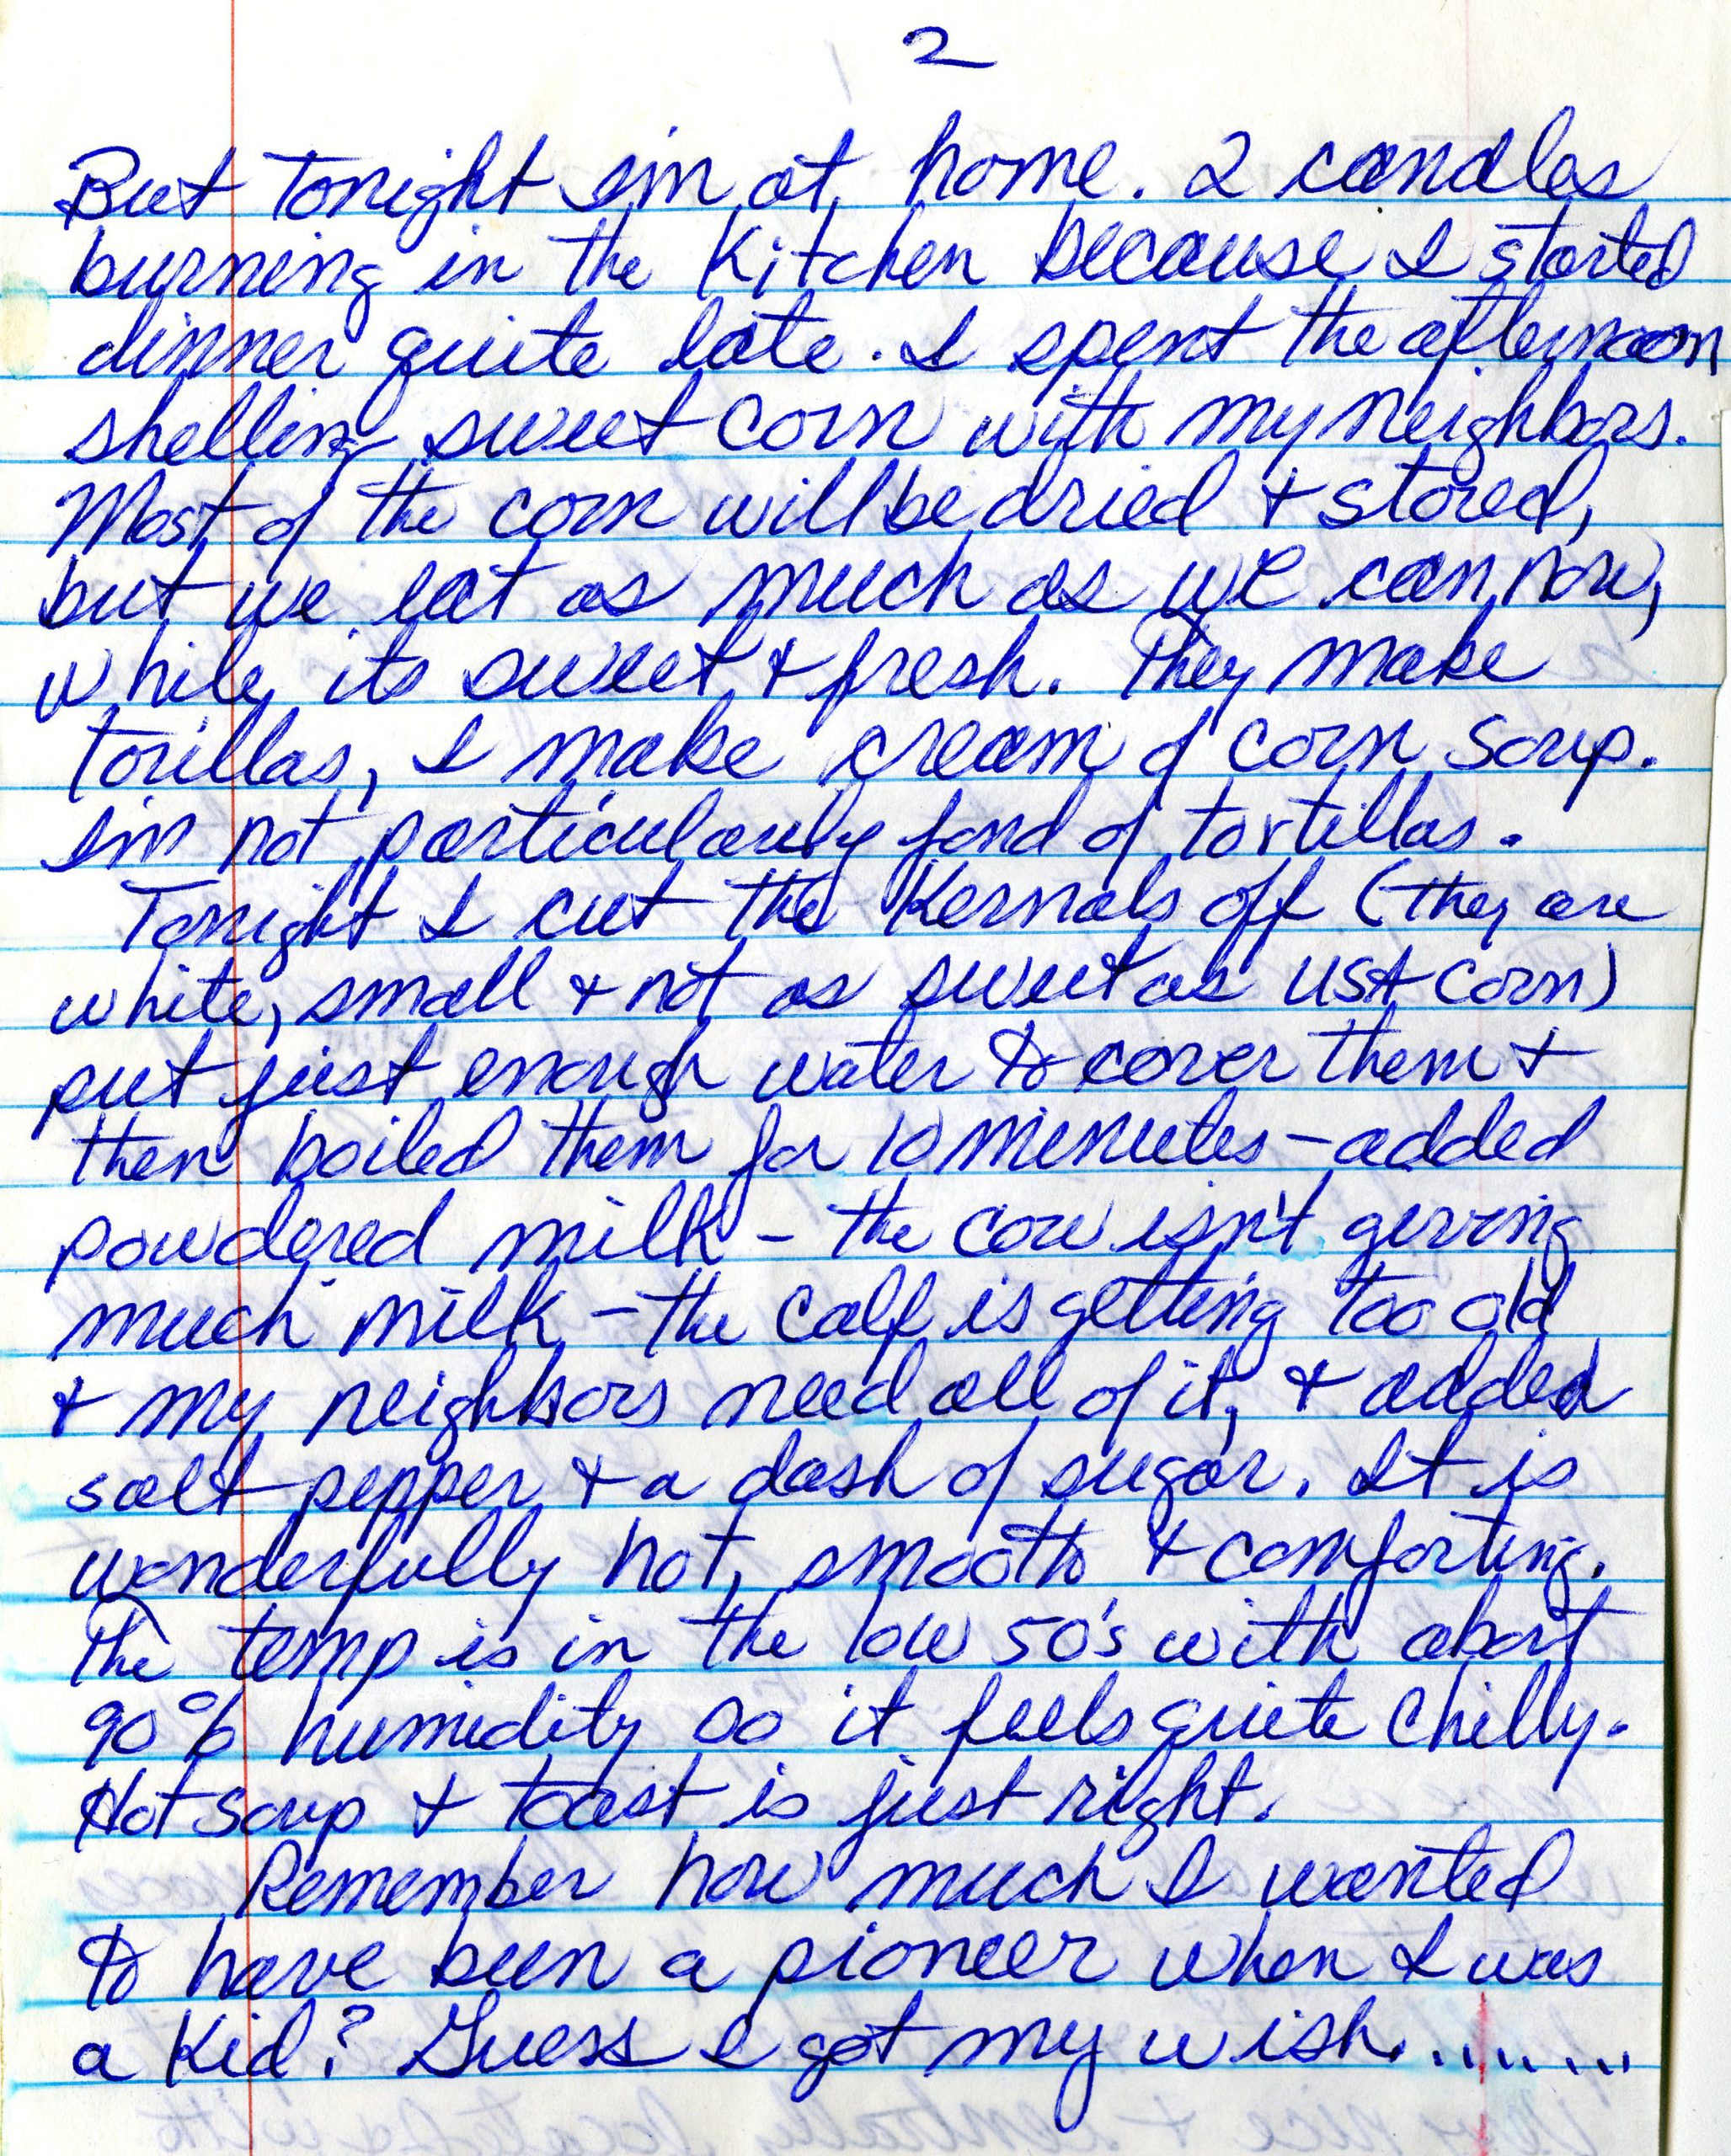 2
But tonight I'm at home. 2 candles
burning in the kitchen because I started
dinner quite late. I spent the afternoon
shelling sweet corn with my neighbors.
Most of the corn will be dried + stored,
but we eat as much as we can now,
while its sweet + fresh. They make
torillas, I make cream of corn soup.
I'm not particularly fond of tortillas.
Tonight I cut the kernals off (they are
white, small + not as sweet as USA corn)
put just enough water to cover them +
then boiled them for 10 minutes - added
powdered milk - the cow isn't giving
much milk - the calf is getting too old
+ my neighbors need all of it, + added
salt pepper + a dash of sugar. It is
wonderfully hot, smooth + comforting.
The temp is in the low 50's with about
90% humidity so it feels quite chilly.
Hot soup + toast is just right.
Remember how much I wanted
to have been a pioneer when I was
a kid? Guess I got my wish.......